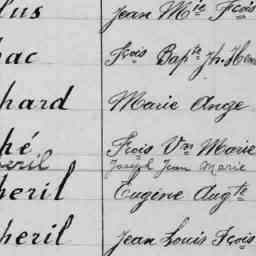 lus Jean Mie Fçois
ac Fçois Bapte Jh.
hard Marie Ange
hé Fçois Vn Marie
heril Joseph Jean Marie
heril Eugène Augte
heril Jean Louis Fçois